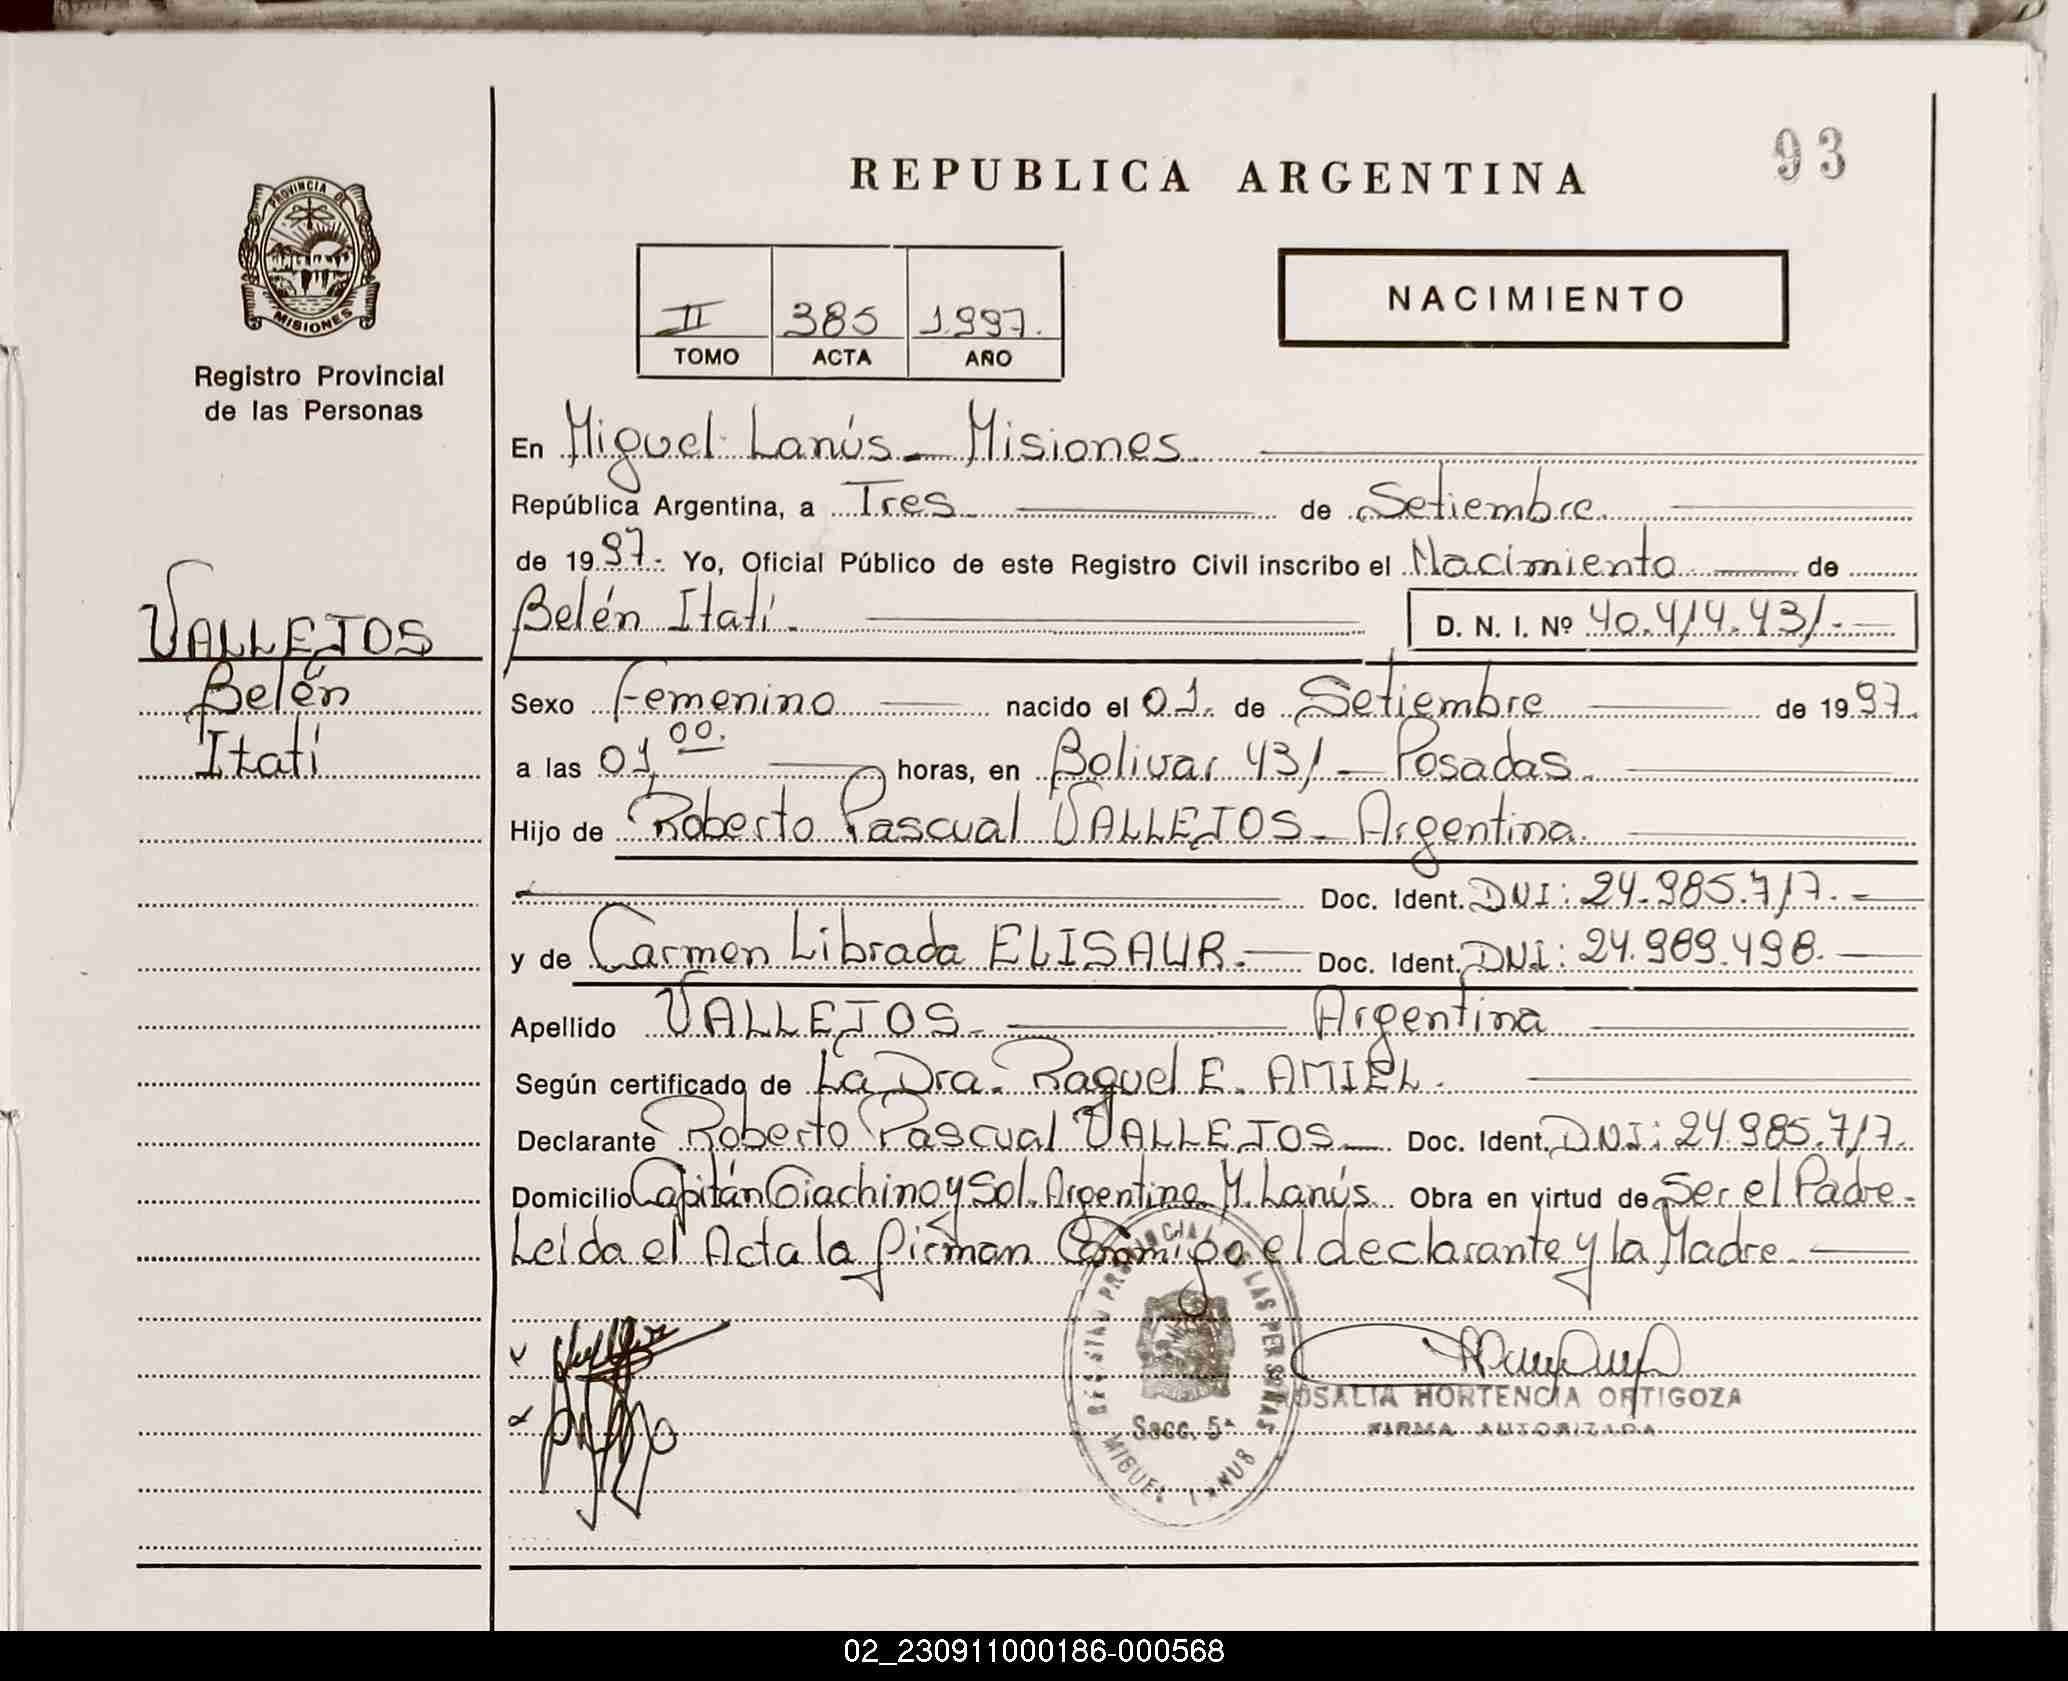 93
REPUBLICA ARGENTINA
PROVINCIA DE
MISIONES
Registro Provincial
de las Personas
NACIMIENTO
II 385 1997.
TOMO ACTA AÑO
En Miguel Lanús - Misiones
República Argentina, a Tres de Setiembre
de 1997. Yo, Oficial Público de este Registro Civil inscribo el Nacimiento de
VALLEJOS
Belén Itatí. D. N. I. Nº 40.414.431.-
Belén
Sexo Femenino nacido el 01. de Setiembre de 1997.
Itatí
a las 01,00. horas, en Bolivar 431 - Posadas.
Hijo de Roberto Pascual VALLEJOS - Argentina.
Doc. Ident. DNI: 24.985.717.-
y de Carmen Librada ELISAUR.- Doc. Ident. DNI: 24.989.498.
Apellido VALLEJOS.- Argentina
Según certificado de La Dra. Raquel E. AMIEL.
Declarante Roberto Pascual VALLEJOS - Doc. Ident. DNI: 24.985.717.
Domicilio Capitán Giachino y Sol. Argentino M. Lanús. Obra en virtud de Ser el Padre.-
Leida el Acta la firman Conmigo el declarante y la Madre.
Secc. 5ª
MIGUEL LANUS
OSALIA HORTENCIA ORTIGOZA
FIRMA AUTORIZADA
02_230911000186-000568